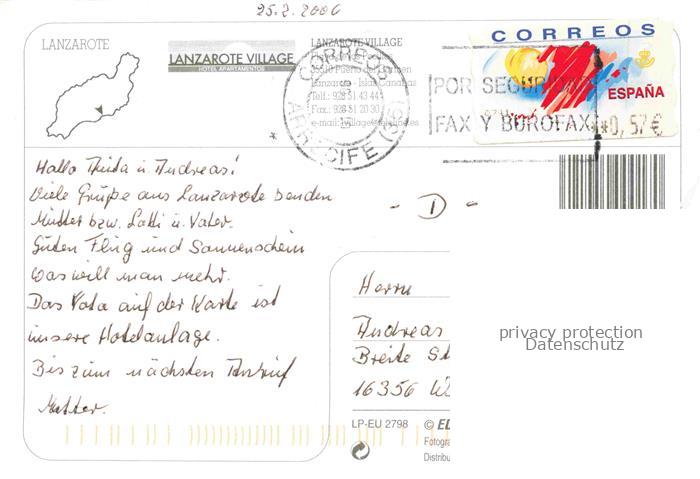 25.2.2006
LANZAROTE
LANZAROTE VILLAGE
HOTEL APARTAMENTOS
LANZAROTE VILLAGE
35510 Puerto del Carmen
Lanzarote - Islas Canarias
Telf.: 928 51 43 44
Fax.: 928 51 20 30
CORREOS
ARRECIFE (35)
POR SEGURIDAD
FAX Y BUROFAX
CORREOS
ESPAÑA
**0,57€
*
Hallo u. Andreas!
Viele Grüße aus Lanzarote senden
Mutter bzw. u. Vater.
Guten Flug und Sonnenschein
was will man mehr.
Das auf der Karte ist
unsere Hotelanlage.
Bis zum nächsten Anruf
Mutter.
- D -
Herrn
Andreas
Breite St
16356
LP-EU 2798 ©
Fotogra
Distribu
privacy protection
Datenschutz